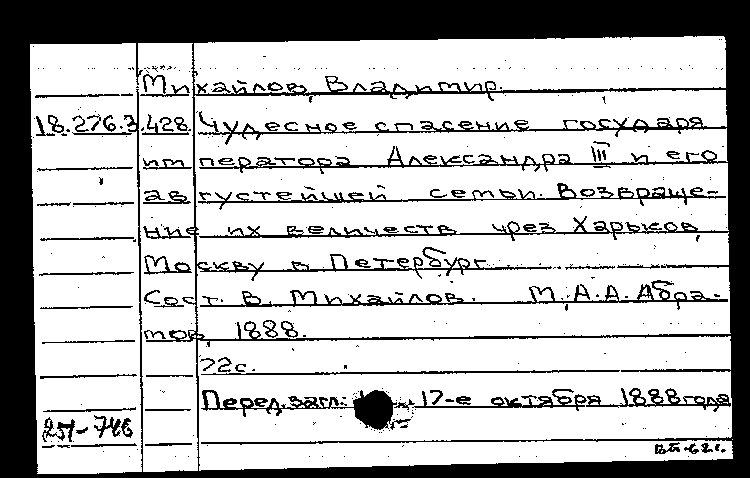 Михайлов, Владимир.
18.276.3.428 Чудесное спасение государя
императора Александра III и его
августейшей семьи. Возвраще-
ние их величеств чрез Харьков,
Москву в Петербург.
Сост. В. Михайлов. М., А.А. Абра-
мов, 1888.
72с.
Перед.загл: 17-е октября 1888 года
251-746